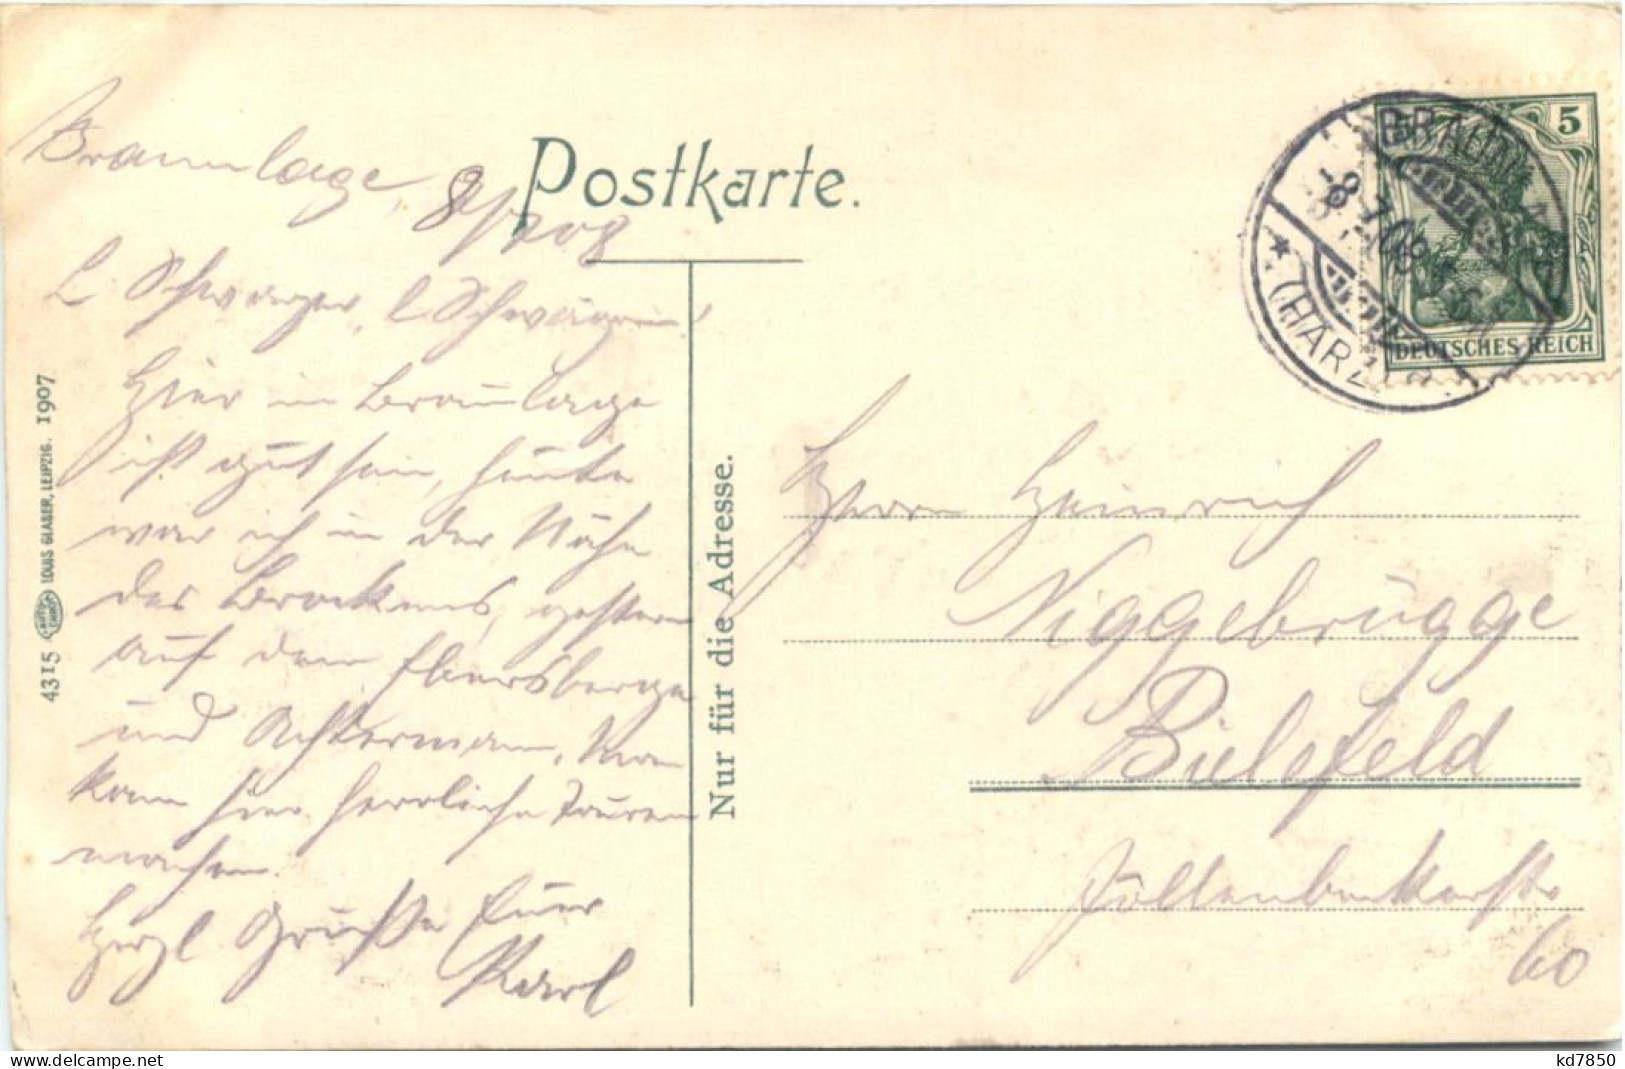 Braunlage, 8/7 08
Postkarte.
L. Schwager, l. Schwägerin!
Hier in Braunlage
ist gut sein, heute
war ich in der Nähe
des Brockens, gestern
auf dem Ebersberge
und Achtermann. Man
kann hier herrliche Touren
machen.
Herzl. Grüße Euer
Karl
4315 LOUIS GLASER, LEIPZIG. 1907
Nur für die Adresse.
5
DEUTSCHES REICH
8 7 08
(HARZ)
Herrn Heinrich
Niggebrügge
Bielefeld
Jöllenbeckerstr
60
kd7850
www.delcampe.net